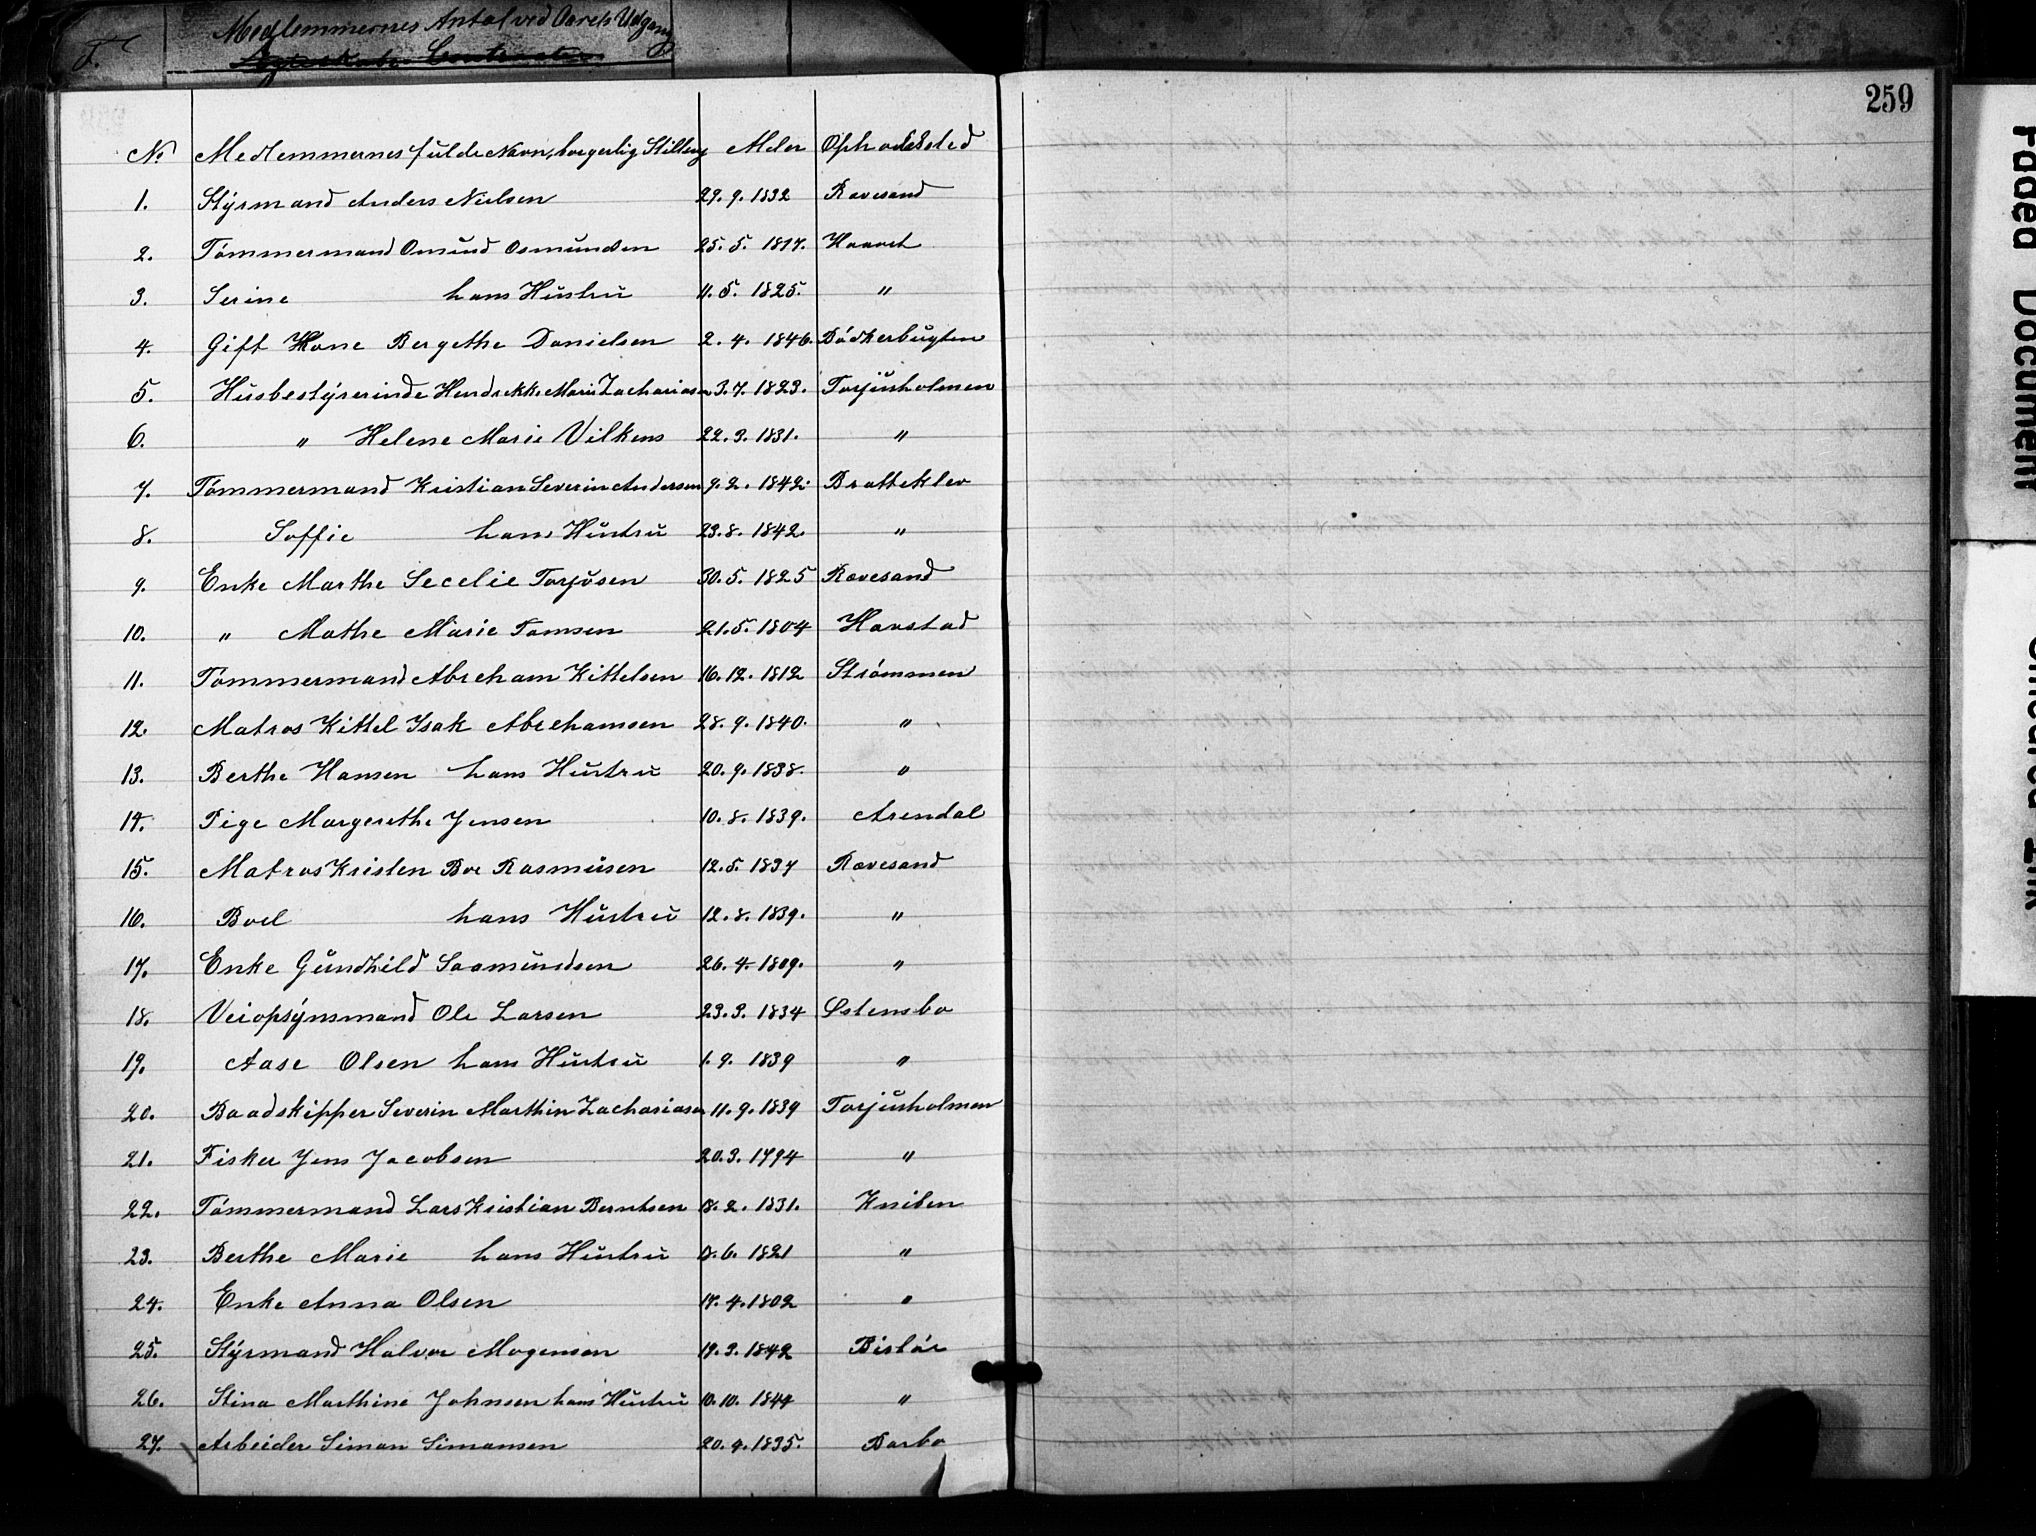 F.
Medlemmernes Antal ved Aarets Udgang
259
No Medlemmernes fulde Navn, borgerlig Stilling Alder Opholdssted
1. Styrmand Anders Nielsen 29. 9. 1832 Rævesand
2. Tømmermand Omund Osmundsen 25. 5. 1817. Haavet
3. Serine hans Hustru 11. 5. 1825. "
4. Gift Kone Bergethe Danielsen 2. 4. 1846. Bødkerbugten
5. Husbestyrerinde Hendrekke Marie Zachariasen 3. 7. 1823. Torjusholmen
6. " Helene Marie Vilkens 22. 3. 1831. "
7. Tømmermand Kristian Severin Andersen 9. 2. 1842. Bratteklev
8. Soffie hans Hustru 23. 8. 1842. "
9. Enke Marthe Secelie Torjusen 30. 5. 1825 Rævesand
10. " Mathe Marie Tomsen 21. 5. 1804 Havstad
11. Tømmermand Abreham Kittelsen 16. 12. 1812 Strømmen
12. Matros Kittel Isak Abrehamsen 28. 9. 1840. "
13. Berthe Hansen hans Hustru 20. 9. 1838. "
14. Pige Margerethe Jensen 10. 8. 1839. Arendal
15. Matros Kristen Boe Rasmusen 12. 5. 1837 Rævesand
16. Boel hans Hustru 12. 8. 1839. "
17. Enke Gundhild Saamundsen 26. 4. 1809. "
18. Veiopsynsmand Ole Larsen 23. 3. 1834 Østensbo
19. Aase Olsen hans Hustru 1. 9. 1839 "
20. Baadskipper Severin Marthin Zachariasen 11. 9. 1839 Torjusholmen
21. Fisker Jens Jacobsen 20. 3. 1794 "
22. Tømmermand Lars Kristian Berntsen 18. 2. 1831. Kniben
23. Berthe Marie hans Hustru 18. 6. 1821 "
24. Enke Anna Olsen 17. 4. 1802 "
25. Styrmand Halvor Mogensen 19. 3. 1842 Bisløe
26. Stina Marthine Johnsen hans Hustru 10. 10. 1844 "
27. Arbeider Simon Simonsen 20. 4. 1835. Barbo
Faded Document